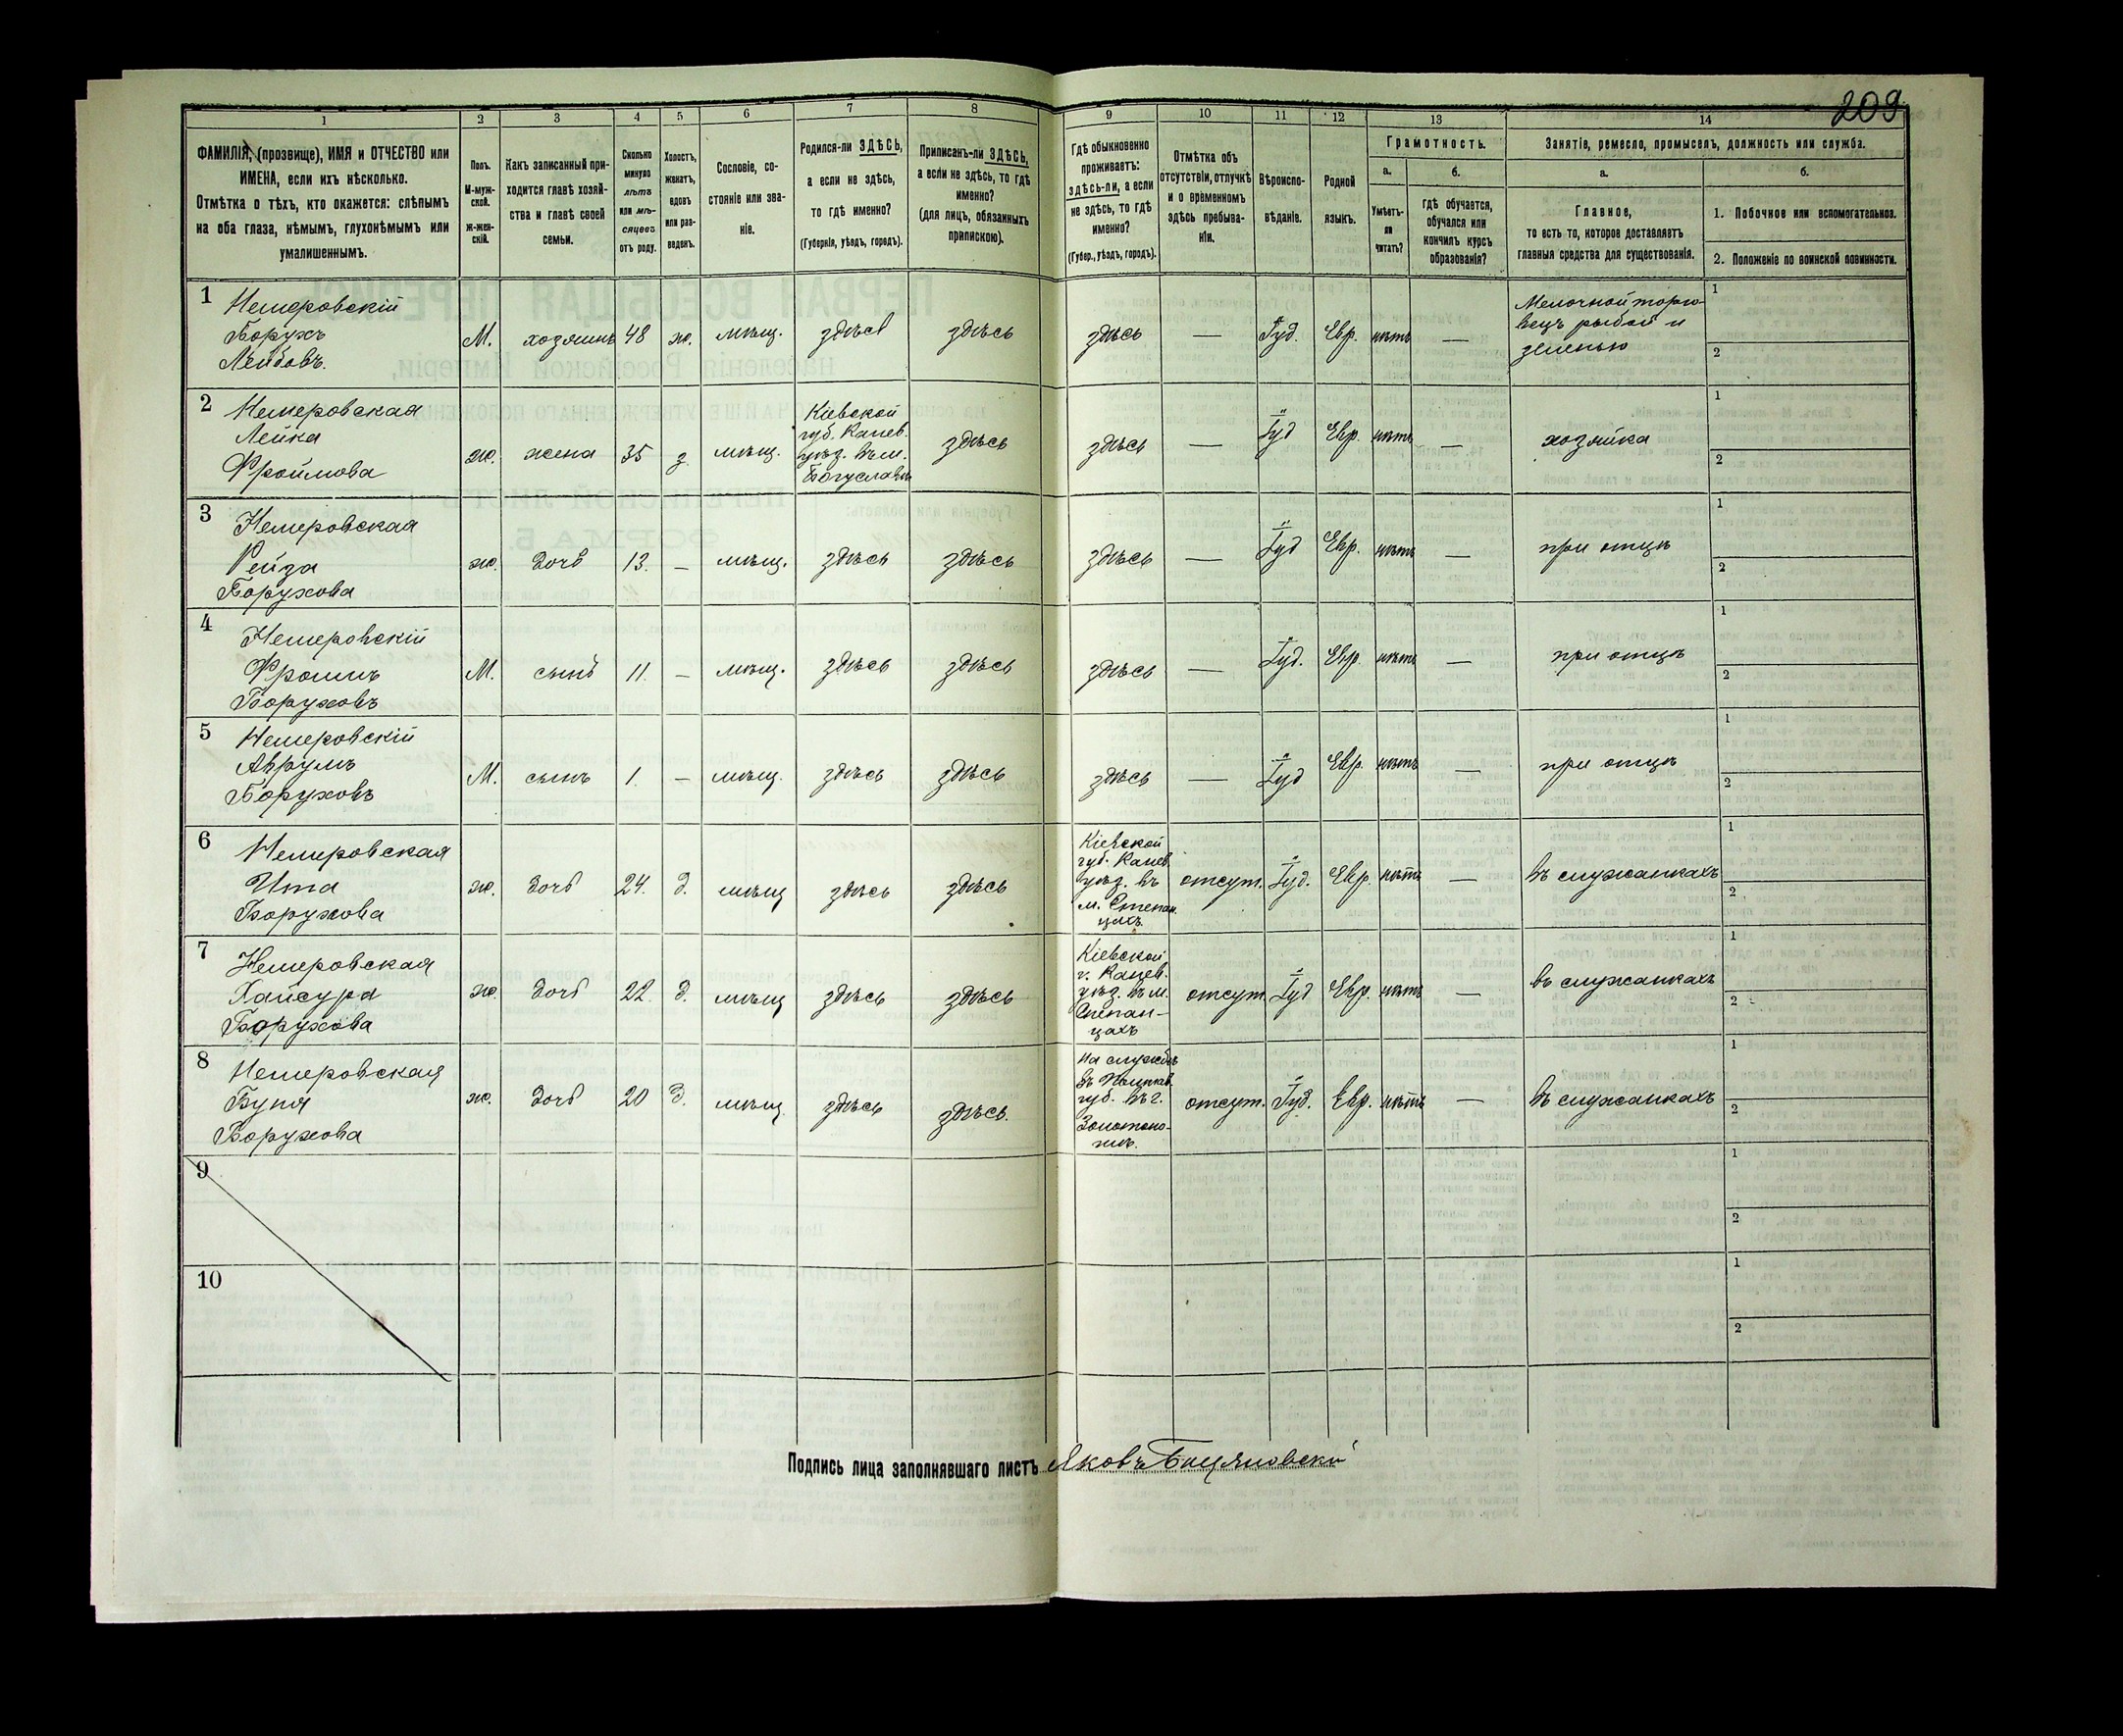 209
1 2 3 4 5 6 7 8 9 10 11 12 13 14
ФАМИЛІЯ, (прозвище), ИМЯ и ОТЧЕСТВО или
ИМЕНА, если ихъ нѣсколько.
Отмѣтка о тѣхъ, кто окажется: слѣпымъ
на оба глаза, нѣмымъ, глухонѣмымъ или
умалишеннымъ.
Полъ.
М-муж-
ской.
ж-жен-
скій.
Какъ записанный при-
ходится главѣ хозяй-
ства и главѣ своей
семьи.
Сколько
минуло
лѣтъ
или мѣ-
сяцевъ
отъ роду.
Холостъ,
женатъ,
вдовъ
или раз-
веденъ.
Сословіе, со-
стояніе или зва-
ніе.
Родился-ли ЗДѢСЬ,
а если не здѣсь,
то гдѣ именно?
(Губернія, уѣздъ, городъ).
Приписанъ-ли ЗДѢСЬ,
а если не здѣсь, то гдѣ
именно?
(для лицъ, обязанныхъ
припискою).
Гдѣ обыкновенно
проживаетъ:
здѣсь-ли, а если
не здѣсь, то гдѣ
именно?
(Губер., уѣздъ, городъ).
Отмѣтка объ
отсутствіи, отлучкѣ
и о временномъ
здѣсь пребыва-
ніи.
Вѣроиспо-
вѣданіе.
Родной
языкъ.
Грамотность.
а.
Умѣетъ-
ли
читать?
б.
гдѣ обучается,
обучался или
кончилъ курсъ
образованія?
Занятіе, ремесло, промыселъ, должность или служба.
а.
Главное,
то есть то, которое доставляетъ
главныя средства для существованія.
б.
1. Побочное или вспомогательное.
2. Положеніе по воинской повинности.
1
Немеровскій
Борухъ
Лейбовъ.
М.
хозяинъ
48
ж.
мѣщ.
здѣсь
здѣсь
здѣсь
—
Іуд.
Евр.
нѣтъ
—
Мелочной торго-
вецъ рыбой и
зеленью
1
2
2
Немеровская
Лейка
Фроимова
ж.
жена
35
з.
мѣщ.
Кіевской
губ. Канев.
уѣзд. въ м.
Богуславѣ
здѣсь
здѣсь
—
Іуд
Евр.
нѣтъ
—
хозяйка
1
2
3
Немеровская
Рейза
Борухова
ж.
дочь
13.
—
мѣщ.
здѣсь
здѣсь
здѣсь
—
Іуд
Евр.
нѣтъ
—
при отцѣ
1
2
4
Немеровскій
Фроимъ
Боруховъ
М.
сынъ
11.
—
мѣщ.
здѣсь
здѣсь
здѣсь
—
Іуд.
Евр.
нѣтъ
—
при отцѣ
1
2
5
Немеровскій
Аврумъ
Боруховъ
М.
сынъ
1.
—
мѣщ.
здѣсь
здѣсь
здѣсь
—
Іуд
Евр.
нѣтъ
—
при отцѣ
1
2
6
Немеровская
Ита
Борухова
ж.
дочь
24.
д.
мѣщ
здѣсь
здѣсь
Кіевской
губ. Канев.
уѣзд. въ
м. Степан-
цахъ.
отсут.
Іуд.
Евр.
нѣтъ
—
въ служанкахъ
1
2
7
Немеровская
Хайсура
Борухова
ж.
дочь
22.
д.
мѣщ
здѣсь
здѣсь
Кіевской
г. Канев.
уѣзд. въ м.
Степан-
цахъ
отсут.
Іуд
Евр.
нѣтъ
—
въ служанкахъ
1
2
8
Немеровская
Буня
Борухова
ж.
дочь
20
д.
мѣщ
здѣсь
здѣсь.
На службѣ
въ Полтав.
губ. въ г.
Золотоно-
шѣ.
отсут.
Іуд.
Евр.
нѣтъ
—
въ служанкахъ
1
2
9
1
2
10
1
2
Подпись лица заполнявшаго листъ Яковъ